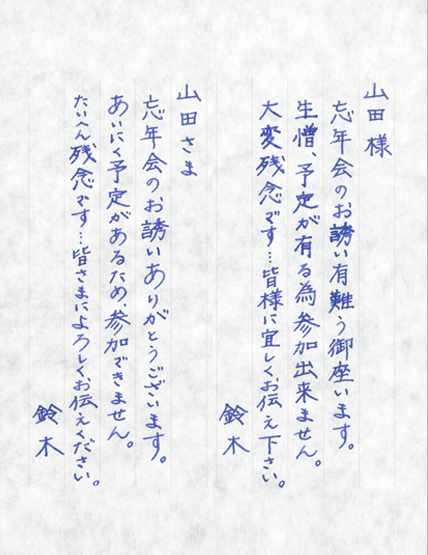 山田様
忘年会のお誘い有難う御座います。
生憎、予定が有る為参加出来ません。
大変残念です…皆様に宜しくお伝え下さい。
鈴木
山田さま
忘年会のお誘いありがとうございます。
あいにく予定があるため、参加できません。
たいへん残念です…皆さまによろしくお伝えください。
鈴木